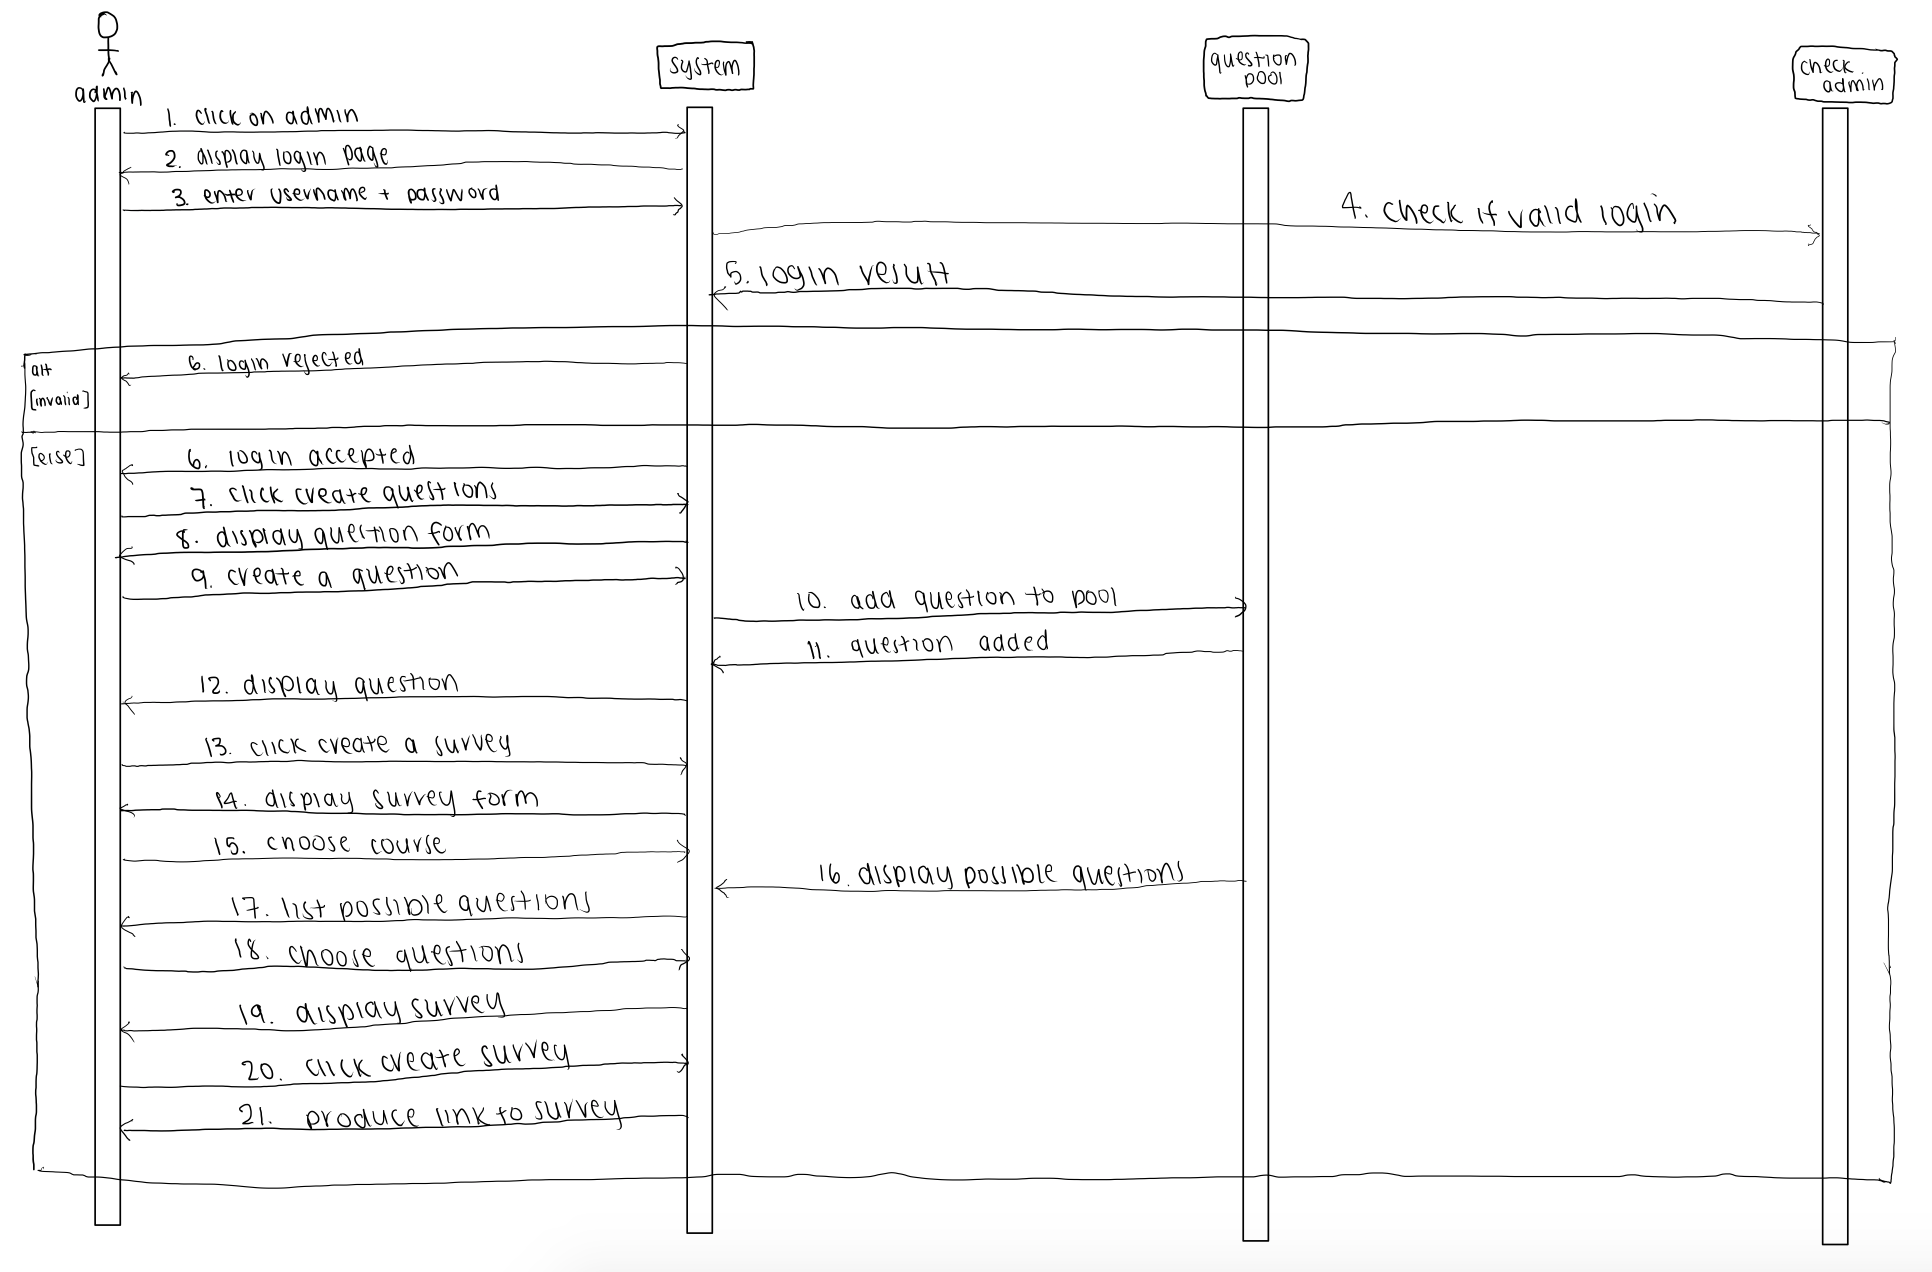 admin
system
question
pool
check
admin
1. click on admin
2. display login page
3. enter username + password
4. check if valid login
5. login result
alt
[invalid]
6. login rejected
[else]
6. login accepted
7. click create questions
8. display question form
9. create a question
10. add question to pool
11. question added
12. display question
13. click create a survey
14. display survey form
15. choose course
16. display possible questions
17. list possible questions
18. choose questions
19. display survey
20. click create survey
21. produce link to survey